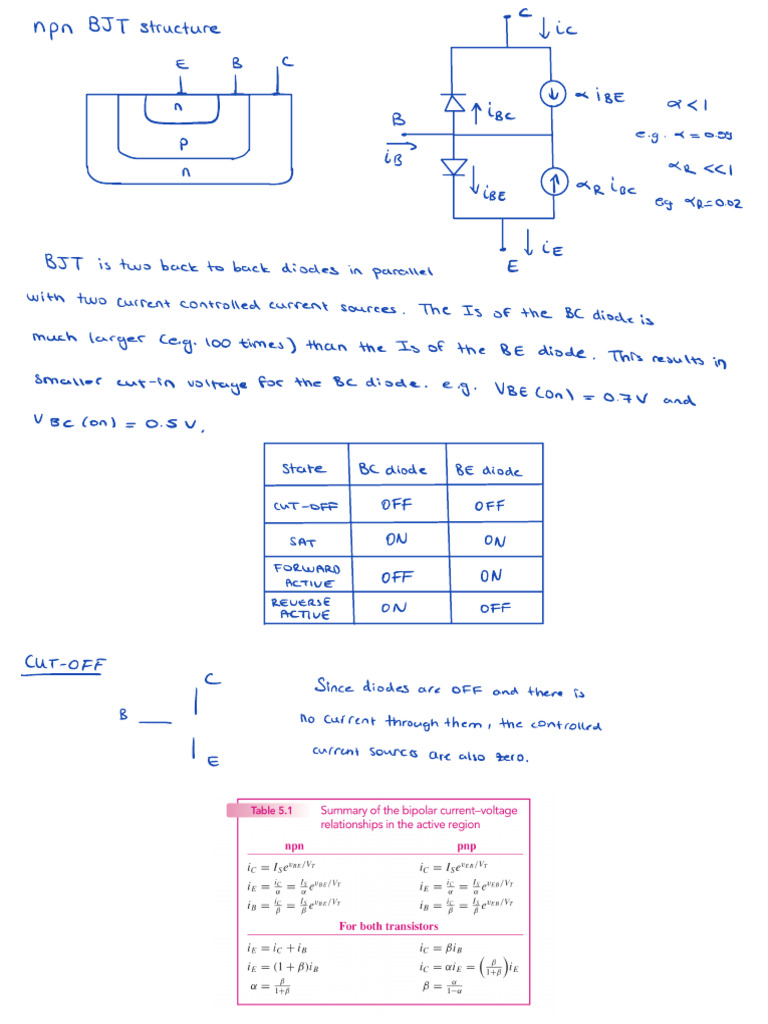 npn BJT structure
E B C
n
p
n
C
iC
α iBE
iBC
B
iB
iBE
αR iBC
iE
E
α<1
e.g. α = 0.99
αR <<1
eg αR=0.02
BJT is two back to back diodes in parallel
with two current controlled current sources. The Is of the BC diode is
much larger (e.g. 100 times) than the Is of the BE diode. This results in
smaller cut-in voltage for the BC diode. e.g. VBE (on) = 0.7V and
VBC (on) = 0.5 V.
State BC diode BE diode
CUT-OFF OFF OFF
SAT ON ON
FORWARD ACTIVE OFF ON
REVERSE ACTIVE ON OFF
CUT-OFF
C
B
E
Since diodes are OFF and there is
no current through them, the controlled
current sources are also zero.
Table 5.1 Summary of the bipolar current–voltage
relationships in the active region
npn pnp
iC = IS e^(vBE/VT) iC = IS e^(vEB/VT)
iE = iC/α = IS/α e^(vBE/VT) iE = iC/α = IS/α e^(vEB/VT)
iB = iC/β = IS/β e^(vBE/VT) iB = iC/β = IS/β e^(vEB/VT)
For both transistors
iE = iC + iB iC = βiB
iE = (1 + β)iB iC = αiE = (β/(1+β))iE
α = β/(1+β) β = α/(1−α)